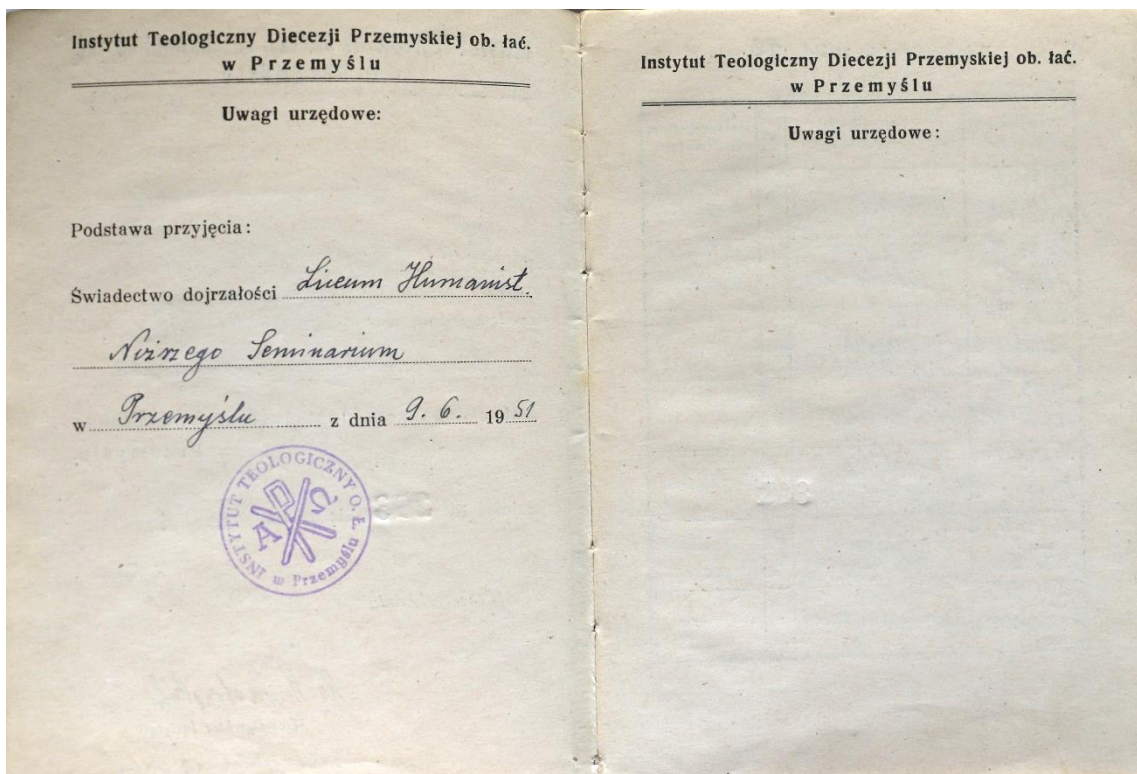 Instytut Teologiczny Diecezji Przemyskiej ob. łać.
w Przemyślu
Uwagi urzędowe:
Podstawa przyjęcia:
Świadectwo dojrzałości Liceum Humanist.
Niższego Seminarium
w Przemyślu z dnia 9. 6. 1951
INSTYTUT TEOLOGICZNY O. Ł.
w Przemyślu
A Ω
Instytut Teologiczny Diecezji Przemyskiej ob. łać.
w Przemyślu
Uwagi urzędowe: